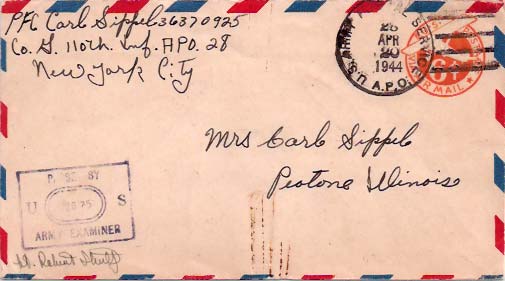 PFC Carl Sippel 36370925
Co. G. 110th. Inf. APO. 28
New York City
U.S. ARMY POSTAL SERVICE
APR
1944
A.P.O.
6¢
AIR MAIL
Mrs Carl Sippel
Peotone Illinois
PASSED BY
U S
ARMY EXAMINER
Lt. Robert